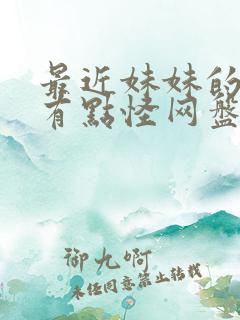 最近妹妹的
有點怪网盤
御九啊
未经同意禁止转载